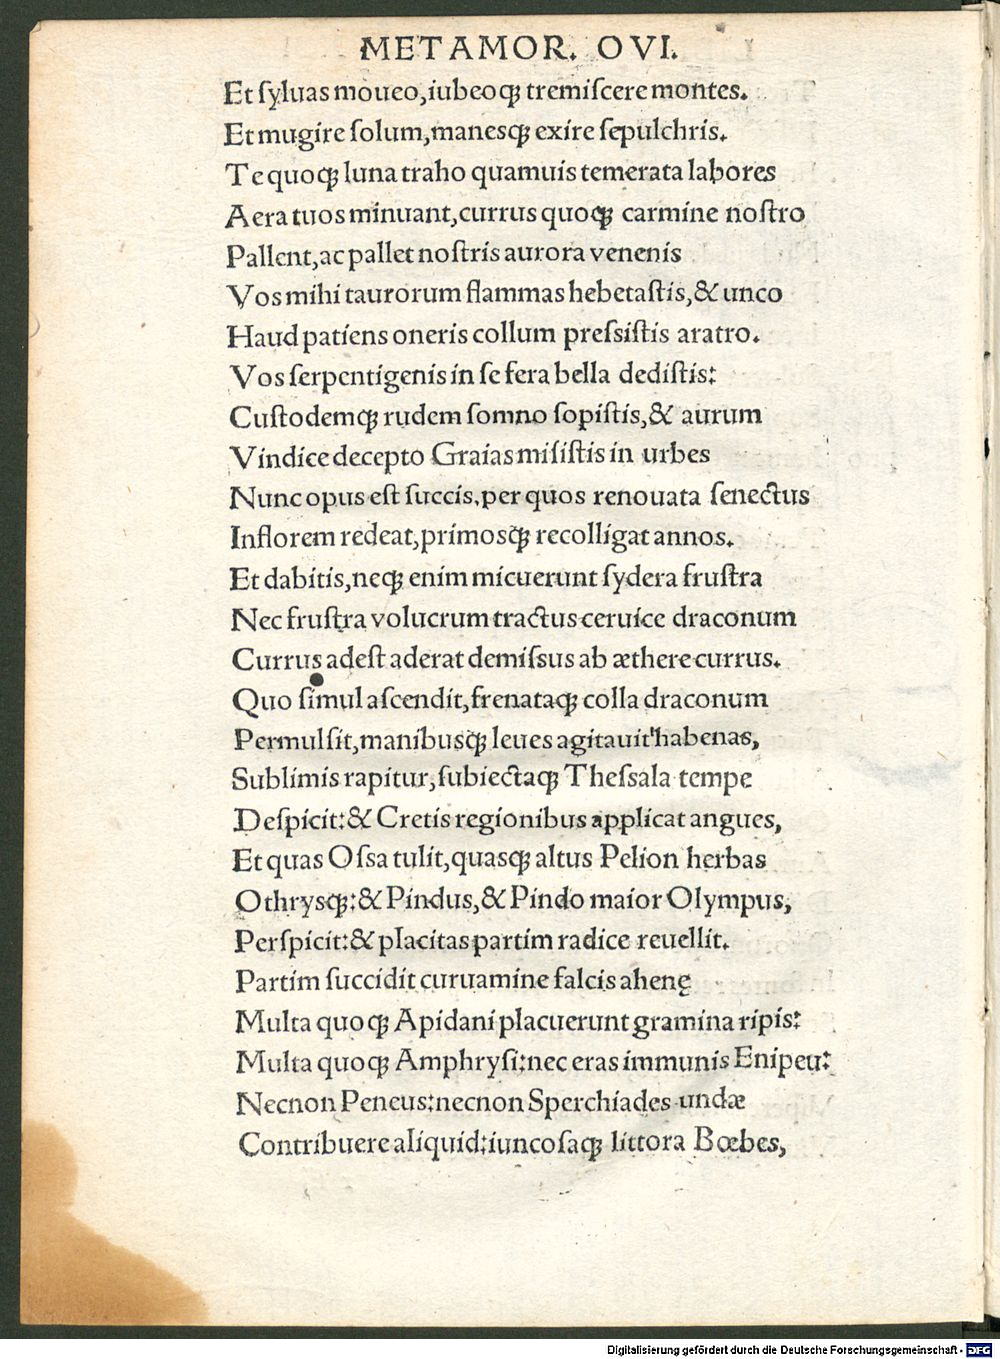 METAMOR. OVI.
Et ſyluas moueo, iubeoqꝫ tremiſcere montes.
Et mugire ſolum, manesqꝫ exire ſepulchris.
Te quoqꝫ luna traho quamuis temerata labores
Aera tuos minuant, currus quoqꝫ carmine noſtro
Pallent, ac pallet noſtris aurora venenis
Vos mihi taurorum flammas hebetaſtis, & unco
Haud patiens oneris collum preſsiſtis aratro.
Vos ſerpentigenis in ſe fera bella dediſtis:
Cuſtodemqꝫ rudem ſomno ſopiſtis, & aurum
Vindice decepto Graias miſiſtis in urbes
Nunc opus eſt ſuccis, per quos renouata ſenectus
Inflorem redeat, primosqꝫ recolligat annos.
Et dabitis, neqꝫ enim micuerunt ſydera fruſtra
Nec fruſtra volucrum tractus ceruice draconum
Currus adeſt aderat demiſsus ab æthere currus.
Quo ſimul aſcendit, frenataqꝫ colla draconum
Permulſit, manibusqꝫ leues agitauit habenas,
Sublimis rapitur, ſubiectaqꝫ Theſsala tempe
Deſpicit: & Cretis regionibus applicat angues,
Et quas Oſsa tulit, quasqꝫ altus Pelion herbas
Othrysqꝫ: & Pindus, & Pindo maior Olympus,
Perſpicit: & placitas partim radice reuellit.
Partim ſuccidit curuamine falcis ahenę
Multa quoqꝫ Apidani placuerunt gramina ripis:
Multa quoqꝫ Amphryſi: nec eras immunis Enipeu:
Necnon Peneus: necnon Sperchiades undæ
Contribuere aliquid: iuncoſaqꝫ littora Bœbes,
Digitalisierung gefördert durch die Deutsche Forschungsgemeinschaft - DFG